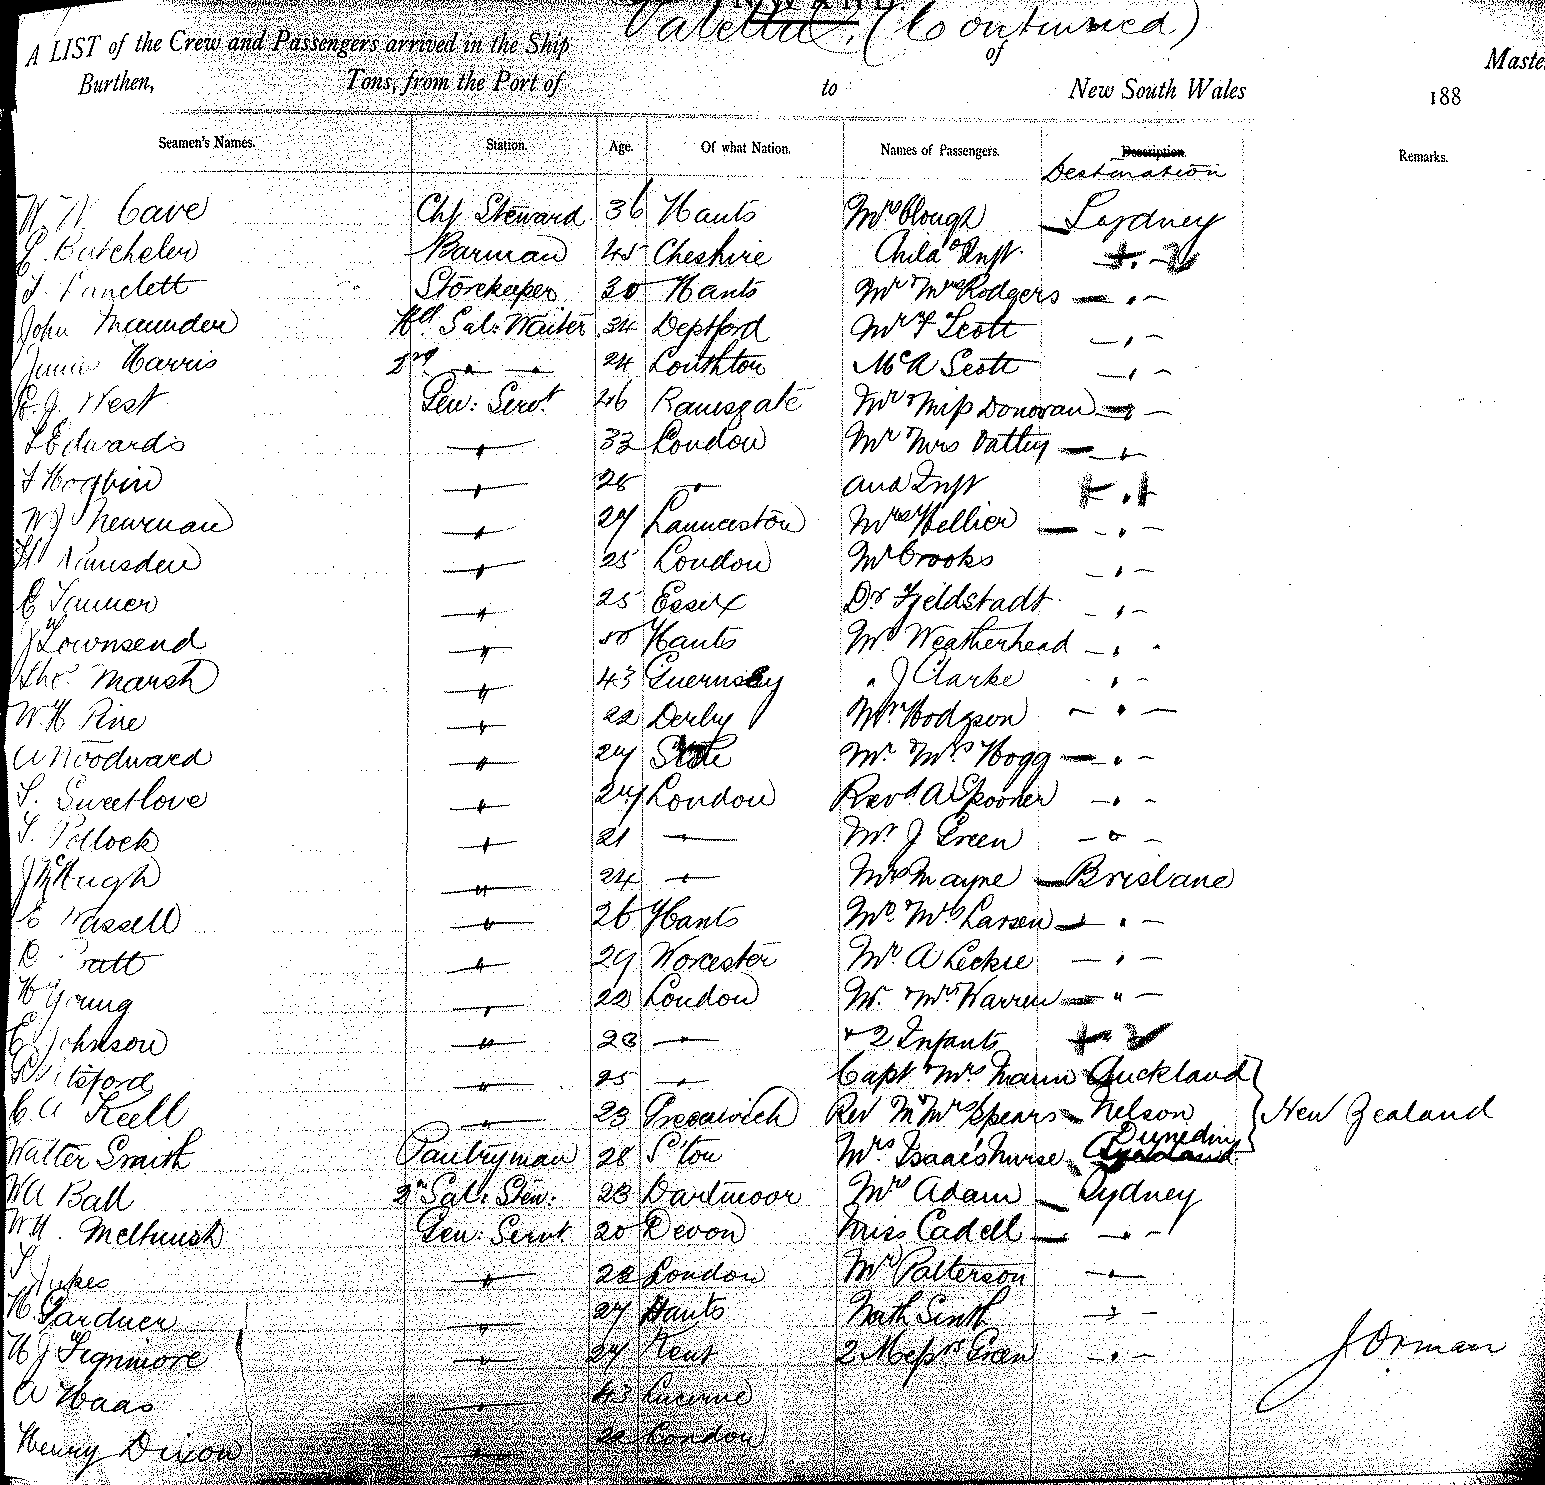 Valetta. (Continued)
A LIST of the Crew and Passengers arrived in the Ship of Master
Burthen, Tons, from the Port of to New South Wales 188
Seamen's Names. Station. Age. Of what Nation. Names of Passengers. Description Remarks.
Destination
W. W. Cave Chf Steward 36 Hants Mrs Clough Sydney
Batcheler Barman 45 Cheshire Infr.
Storekeeper 30 Hants Mr Mrs Rodgers — " —
John Maunder Hd Sal: Waiter 24 Deptford Mr F Scott — " —
Harris 2nd " " 24 Mr A Scott — " —
West Gen: Servt. 46 Ramsgate Mr Miss Donovan — " —
Edwards " 33 London Mr Mrs — " —
" " and Inft
W J Newman " 27 Launceston Mrs Hellier — " —
H Ramsden " 25 London Mr Crooks — " —
C Tanner " 25 Essex Dr Fjeldstadt — " —
J Townsend " Hants Mr Weatherhead — " —
Thos Marsh " 43 Guernsey " J Clarke — " —
W H Pine " 22 Derby Mr Hodgson — " —
A Woodward " 27 Mr. Mrs Hogg — " —
Sweetlove " 27 London Revd A Spooner — " —
Pollock " 21 — " — Mr. J Green — " —
J McHugh " 24 — " — Mrs Mayne — Brisbane
" 26 Hants Mr. Mrs Larsen — " —
" 29 Worcester Mr. A Leckie — " —
H Young " 22 London Mr. Mrs Warren — " —
E Johnson " 23 — " — + 2 Infants
" 25 — " — Capt Mrs Mann Auckland
C A Keell " 23 Greenwich Rev Mr Mrs Spears — Nelson New Zealand
Dunedin
Walter Smith Pantryman 28 S'ton Mrs Isaacs nurse
W A Ball 2n Sal: Stew: 23 Dartmoor Mrs Adam — Sydney
W H. Melhuish Gen: Servt 20 Devon Miss Cadell — " —
Jukes " 22 London Mr Patterson — " —
H. Gardner " 27 Hants — " —
H J " 27 Kent 2 Messrs Green — " —
J Orman
A Haas " 43 Lucerne
Henry Dixon " London